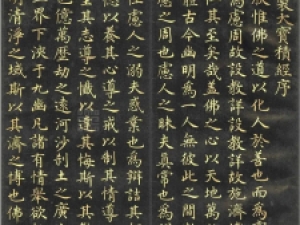 製大寶積經序
惟佛之道以化人於善也而為
為慮周故設教詳設教詳故施濟
其至矣哉蓋佛之心以天地萬
古今幽明為一人無彼此之間
慮之周也慮人之昧夫真常也為
慮人之溺夫惑業也為辯詰其
以養其心導之戒以制其情導
其志導之懺以達其悔斯以其教
億萬歷劫之遠河沙剎土之廣
界下于九幽凡諸有情舉欲
清淨之域斯以其濟之博也佛